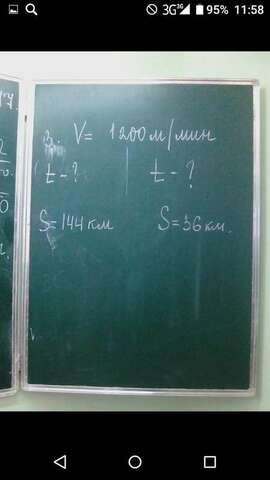 3G 95% 11:58
3. V= 1200м/мин
t-? t-?
S=144км S=36км.